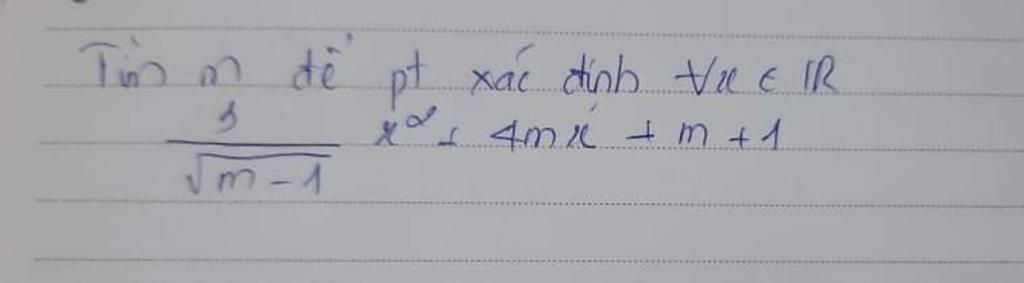 Tìm m để pt xác định ∀x ∈ ℝ
x² + 4mx + m + 1
√m - 1